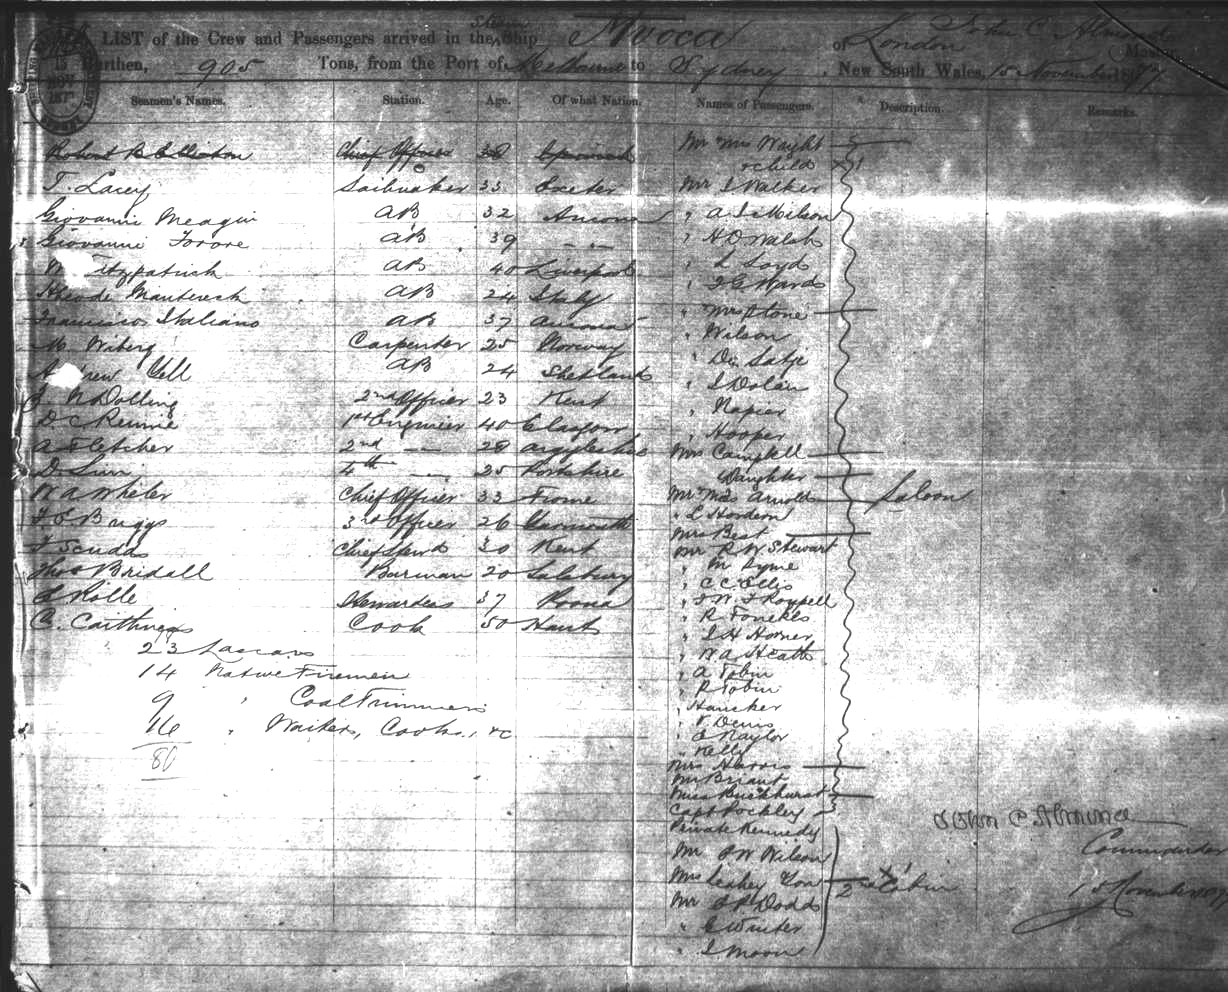 LIST of the Crew and Passengers arrived in the Steam Ship Avoca of London John C Almond Master,
Burthen, 905 Tons, from the Port of Melbourne to Sydney, New South Wales, 15 November 1877
Seamen's Names. Station. Age. Of what Nation. Names of Passengers. Description. Remarks.
Chief Officer 38 Mr Mrs Wright
T. Lacey Sailmaker 33 Exeter
& child
Mr J Walker
Giovanni Meagui AB 32 Ancona
" A J Milson
Giovanni Torore AB 39 — —
" H O Walsh
W Fitzpatrick AB 40 Liverpool
" L Loyd
AB 24 Italy
" F G Wards
Francisco Italiano AB 37 Ancona
" Mrs Stone
M. Wiberg Carpenter 25 Norway
" Wilson
Andrew Yell AB 24 Shetlands
" De Satje
" J Dolan
J N Dolling 2nd Officer 23 Kent
" Napier
D. C Rennie 1st Engineer 40 Glasgow
" Hooper
A Fletcher 2nd — 28 Argyleshire
Mrs Campbell
D Sinn 4th — 25 Yorkshire
Daughter
W A Wheler Chief Officer 33 Frome
Mr Mrs Arnold Saloon
" L Hordern
F E Briggs 3rd Officer 26 Yarmouth
Mrs Best
T Scudds Chief Stewd 30 Kent
Mr R W Stewart
" M Syme
Thos Bridall Barman 20 Salisbury
" C C Ellis
S Rolle Stewardess 37 Poona
" F W F Roypell
" R Fowkes
C. Caithness Cook 50 Hants
" J H Horner
23 Lascars
" W A Heath
14 Native Firemen
" A Tobin
" R Tobin
9 " Coal Trimmers
" Hancker
16 " Waiters, Cooks, &c
" V Denis
" E Naylor
" Kelly
80
Mrs Harris
Mr Briant
Miss Buckhurst
Capt Rockley
John C Almond
Private Kennedy
Commander
Mr P W Wilson
Mrs Leahey
2nd Cabin
15 November 1877
Mr J P Dodd
" C Winter
" J Moon